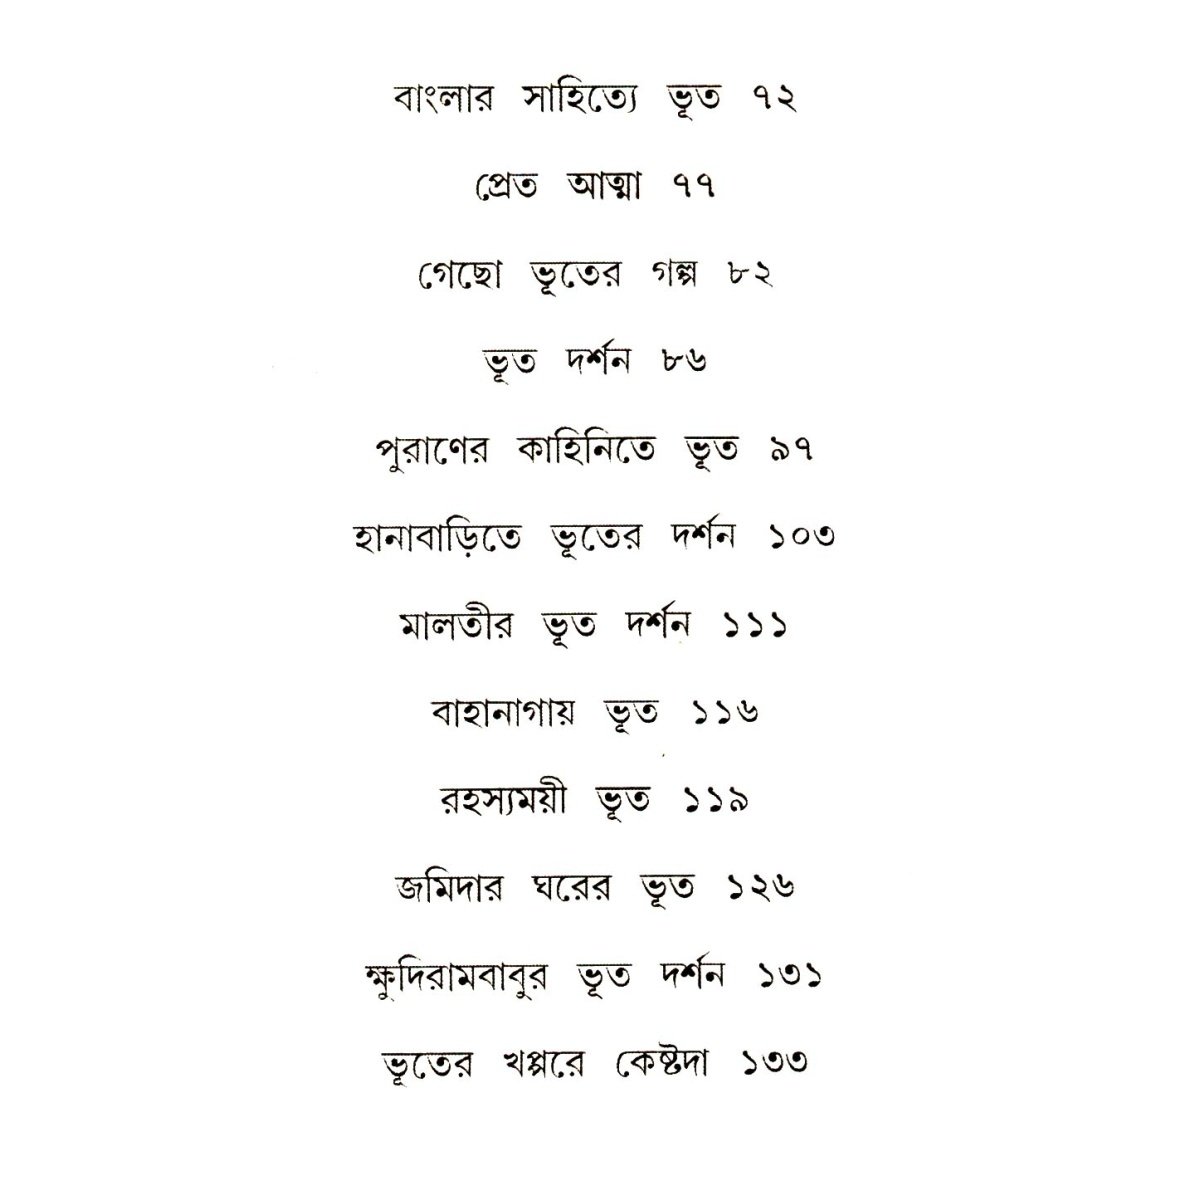 বাংলার সাহিত্যে ভূত ৭২
প্রেত আত্মা ৭৭
গেছো ভূতের গল্প ৮২
ভূত দর্শন ৮৬
পুরাণের কাহিনিতে ভূত ৯৭
হানাবাড়িতে ভূতের দর্শন ১০৩
মালতীর ভূত দর্শন ১১১
বাহানাগায় ভূত ১১৬
রহস্যময়ী ভূত ১১৯
জমিদার ঘরের ভূত ১২৬
ক্ষুদিরামবাবুর ভূত দর্শন ১৩১
ভূতের খপ্পরে কেষ্টদা ১৩৩